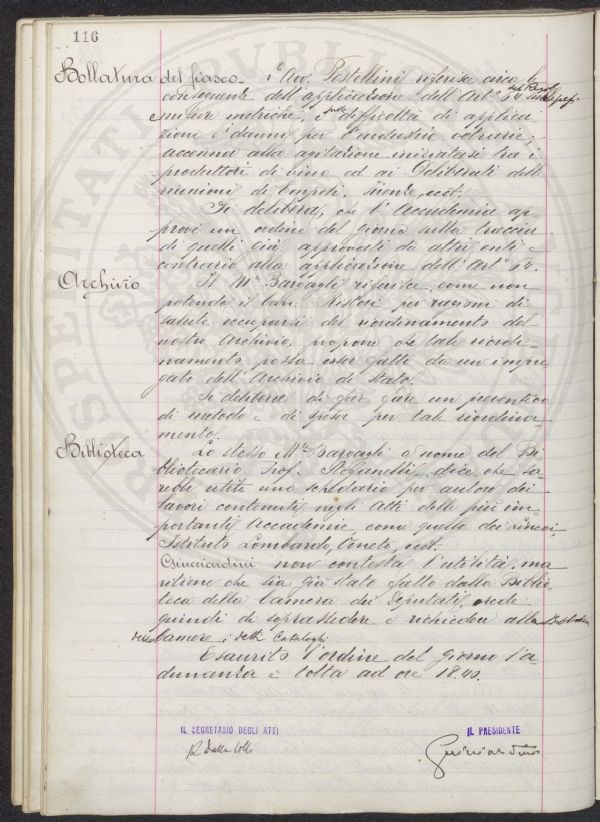 116
Bollatura del fiasco - L'Avv. Pestellini riferisce circa le
conseguenze dell'applicazione dell'Art° 54 del Regol. sui pesi e
misure metriche, e sulle difficoltà di applica
zione e danni per l'industria vetraria;
accenna alla agitazione iniziatasi tra i
produttori di vino ed ai Deliberati delle
riunioni di Empoli, Firenze, ecct.
Si delibera, che l'Accademia ap-
provi un ordine del giorno sulla traccia
di quelli già approvati da altri enti e
contrario alla applicazione dell'Art° 54.
Archivio
Il M.se Bargagli riferisce come non
potendo il Can. Ristori per ragioni di
salute occuparsi del riordinamento del
nostro Archivio, propone che tale riordi-
namento possa esser fatto da un impie
gato dell'Archivio di Stato.
Si delibera di far fare un preventivo
di metodo e di spesa per tale riordina-
mento.
Biblioteca
Lo stesso M.se Bargagli a nome del Bi
bliotecario Prof. Stefanelli, dice che sa
rebbe utile uno schedario per autore dei
lavori contenuti negli Atti delle più im-
portanti Accademie come quella dei Lincei,
Istituto Lombardo, Veneto, ecct.
Guicciardini non contesta l'utilità, ma
ritiene che sia già stato fatto dalla Biblio-
teca della Camera dei Deputati, crede
quindi di soprassedere e richiedere alla Biblioteca
della Camera, i detti Cataloghi
Esaurito l'ordine del giorno l'a-
dunanza è tolta ad ore 18.40.
IL SEGRETARIO DEGLI ATTI
IL PRESIDENTE
Guicciardini